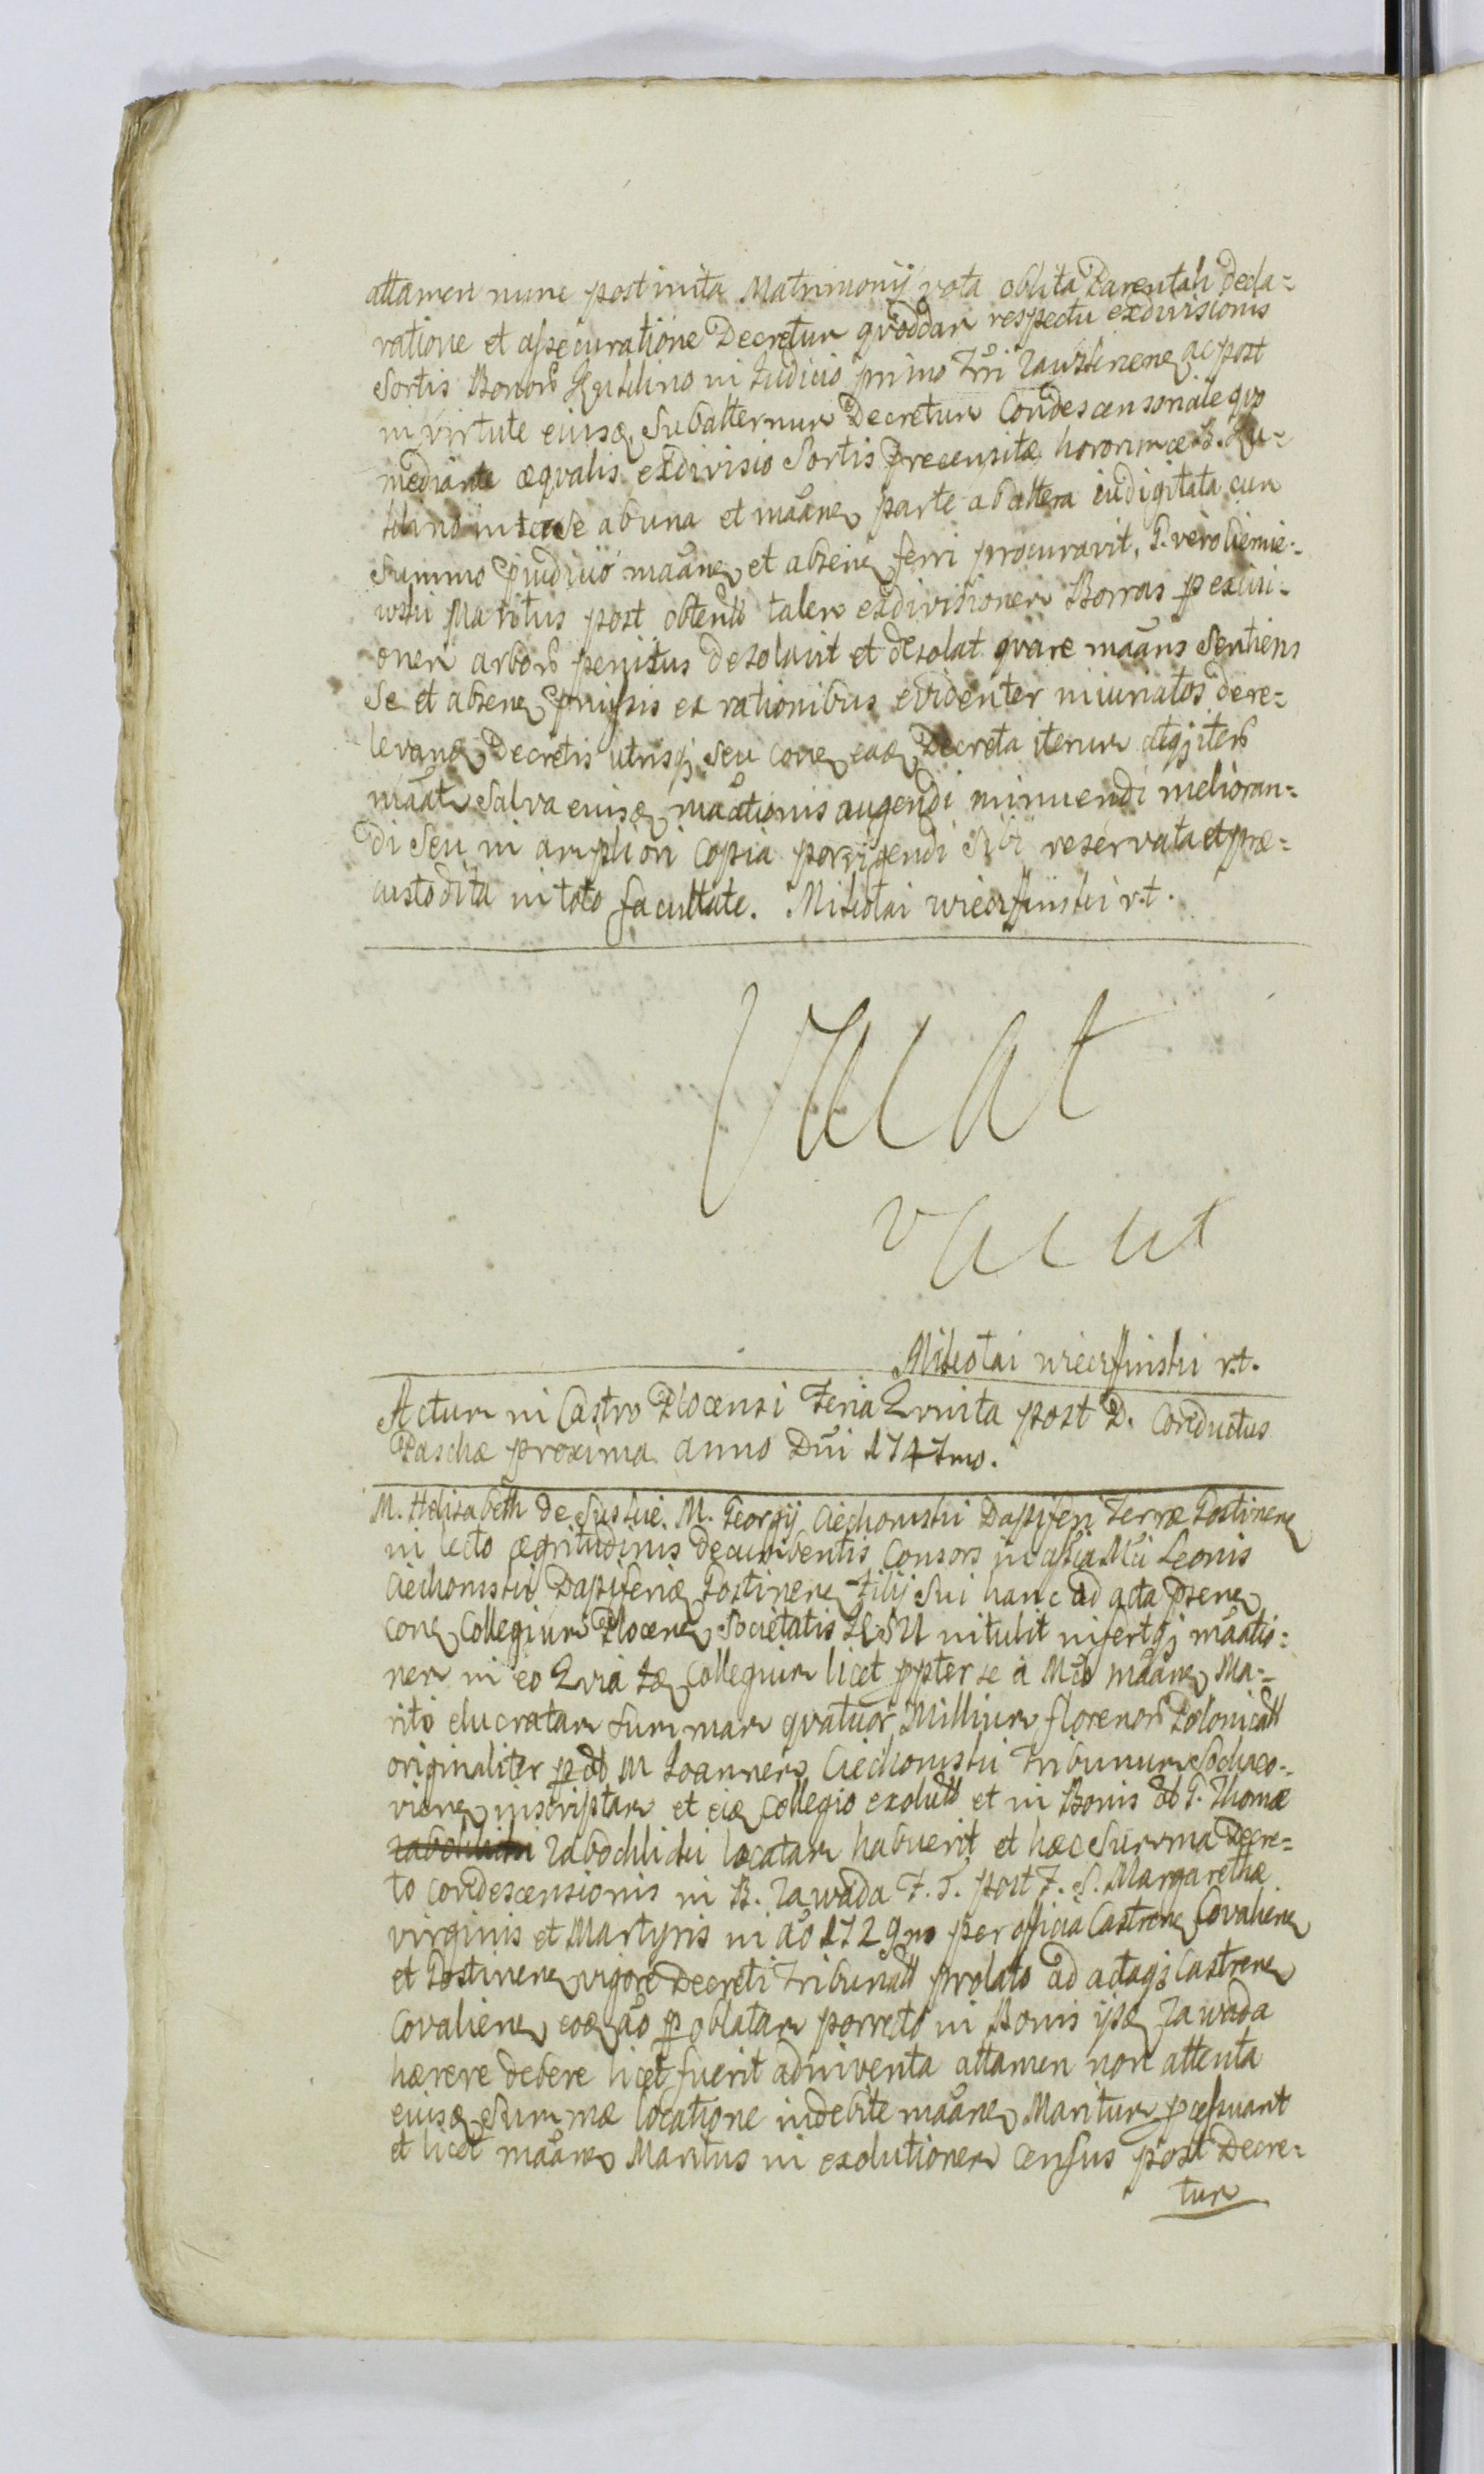 attamen nunc post inita Matrimonij vota oblita Parentali Decla=
ratione et assecuratione Decretum quoddam respectu exdivisionis
Sortis Bonor in Judicio primo Tri ac post
in virtute eiusq Subalternum Decretum Condescensoriale quo
mediante æqualis exdivisio Sortis præcensitæ
inter se ab una et maane parte ab altera indigitata cum
Summo pjudicio maane et absene ferri procuravit, G. vero
Maritus post obtent talem exdivisionem Borras p excisi=
onem arbor penitus desolavit et desolat quare maans Sentiens
Se et absene pmissis ex rationibus evidenter iniuriatos de re=
levand Decretis utrisq seu cone eadq Decreta iterum atq iter
maatr Salva eiusq maationis augendi minuendi melioran=
di Seu in ampliori Copia porrigendi Sibi reservata et præ=
custodita in toto facultate. Mikołai r.t.
Vacat
vacat
Mikołai r.t.
Actum in Castro Plocensi Feria Quinta post D. Conductus
Paschæ proxima anno Dni 1747mo.
M. Helisabeth de M. Georgij Ciechomski Dapiferi Terræ Gostinene
in lecto ægritudinis decumbentis Consors in assia Mci Leonis
Ciechomski Gostinene Filij Sui hanc ad acta psene
cone Collegium Plocene Societatis JESU intulit infertq maatio=
nem in eo Quia Collegium licet ppter se a Mco maane Ma=
rito elucratam Summam quatuor Millium florenor Polonicall
originaliter p ol M Joannem Ciechomski Tribunum Sochaco=
viene inscriptam et Collegio exolut et in Bonis ol G. Thomæ
locatam habuerit et hæc Summa Decre=
to condescensionis in B. Zawada F. post F. S. Margarethæ
virginis et Martyris in ao 1729no per officia Castrene Covaliene
et Gostinene vigore Decreti Tribunall prolato ad actaq Castrene
Covaliene eoq ao p oblatam porrecto in Bonis ipsq Zawada
hærere debere licet fuerit adinventa attamen non attenta
eiusq Summæ locatione indebite maane Maritum
et licet maane Maritus in exolutionem census post Decre=
tum